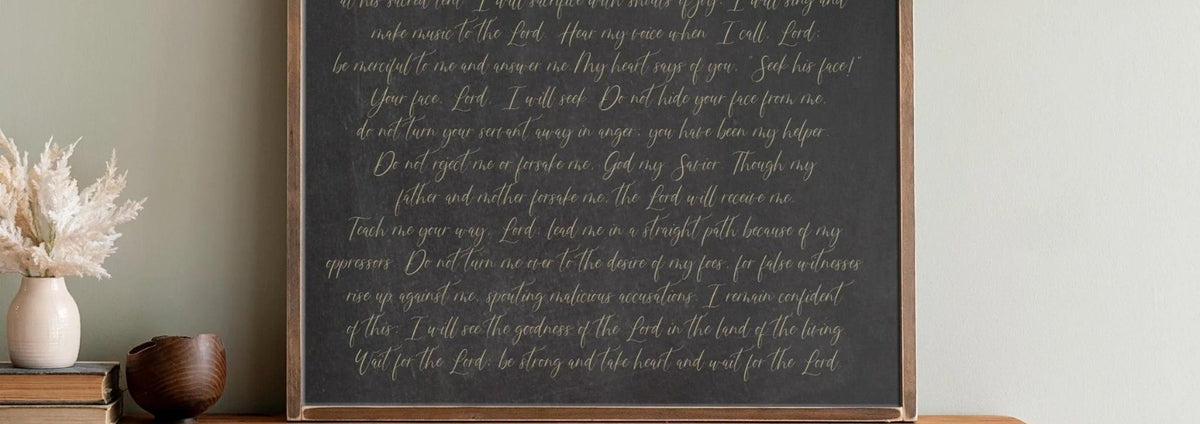 at his sacred tent I will sacrifice with shouts of joy; I will sing and
make music to the Lord. Hear my voice when I call, Lord;
be merciful to me and answer me. My heart says of you, "Seek his face!"
Your face, Lord, I will seek. Do not hide your face from me,
do not turn your servant away in anger; you have been my helper.
Do not reject me or forsake me, God my Savior. Though my
father and mother forsake me, the Lord will receive me.
Teach me your way, Lord; lead me in a straight path because of my
oppressors. Do not turn me over to the desire of my foes, for false witnesses
rise up against me, spouting malicious accusations. I remain confident
of this: I will see the goodness of the Lord in the land of the living
Wait for the Lord; be strong and take heart and wait for the Lord